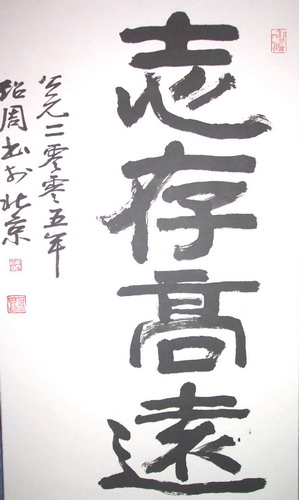 志存高遠
公元二零零五年
绍周书於北京